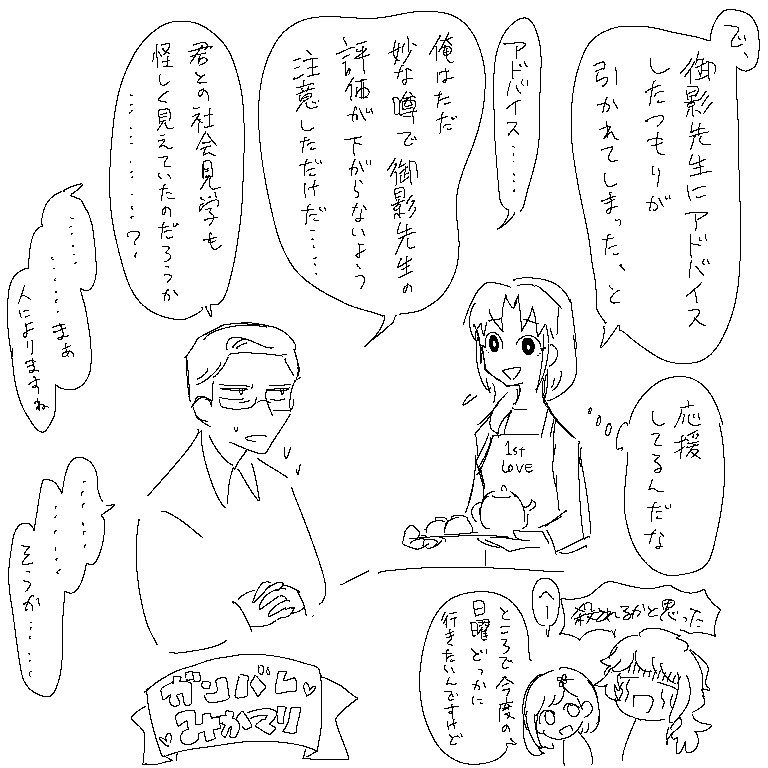 で、
御影先生にアドバイス
したつもりが
引かれてしまった、と
アドバイス……
俺はただ
妙な噂で御影先生の
評価が下がらないよう
注意しただけだ……
君との社会見学も
怪しく見えていたのだろうか
…………?
……
……まぁ
人によりますね
応援
してるんだな
1st
LOVE
……
……
そうか……
殺されるかと思った
へー
ところで今度の
日曜どっかに
行きたいんですけど
ガンバレ♡
♡みかマリ